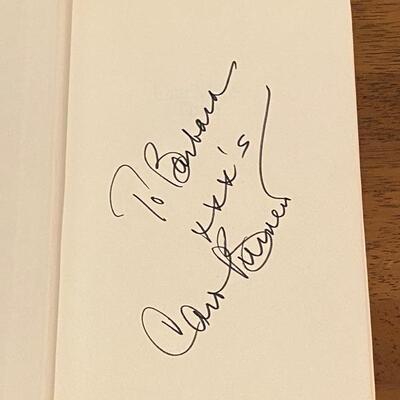 To Barbara
xxx's
Carol Burnett